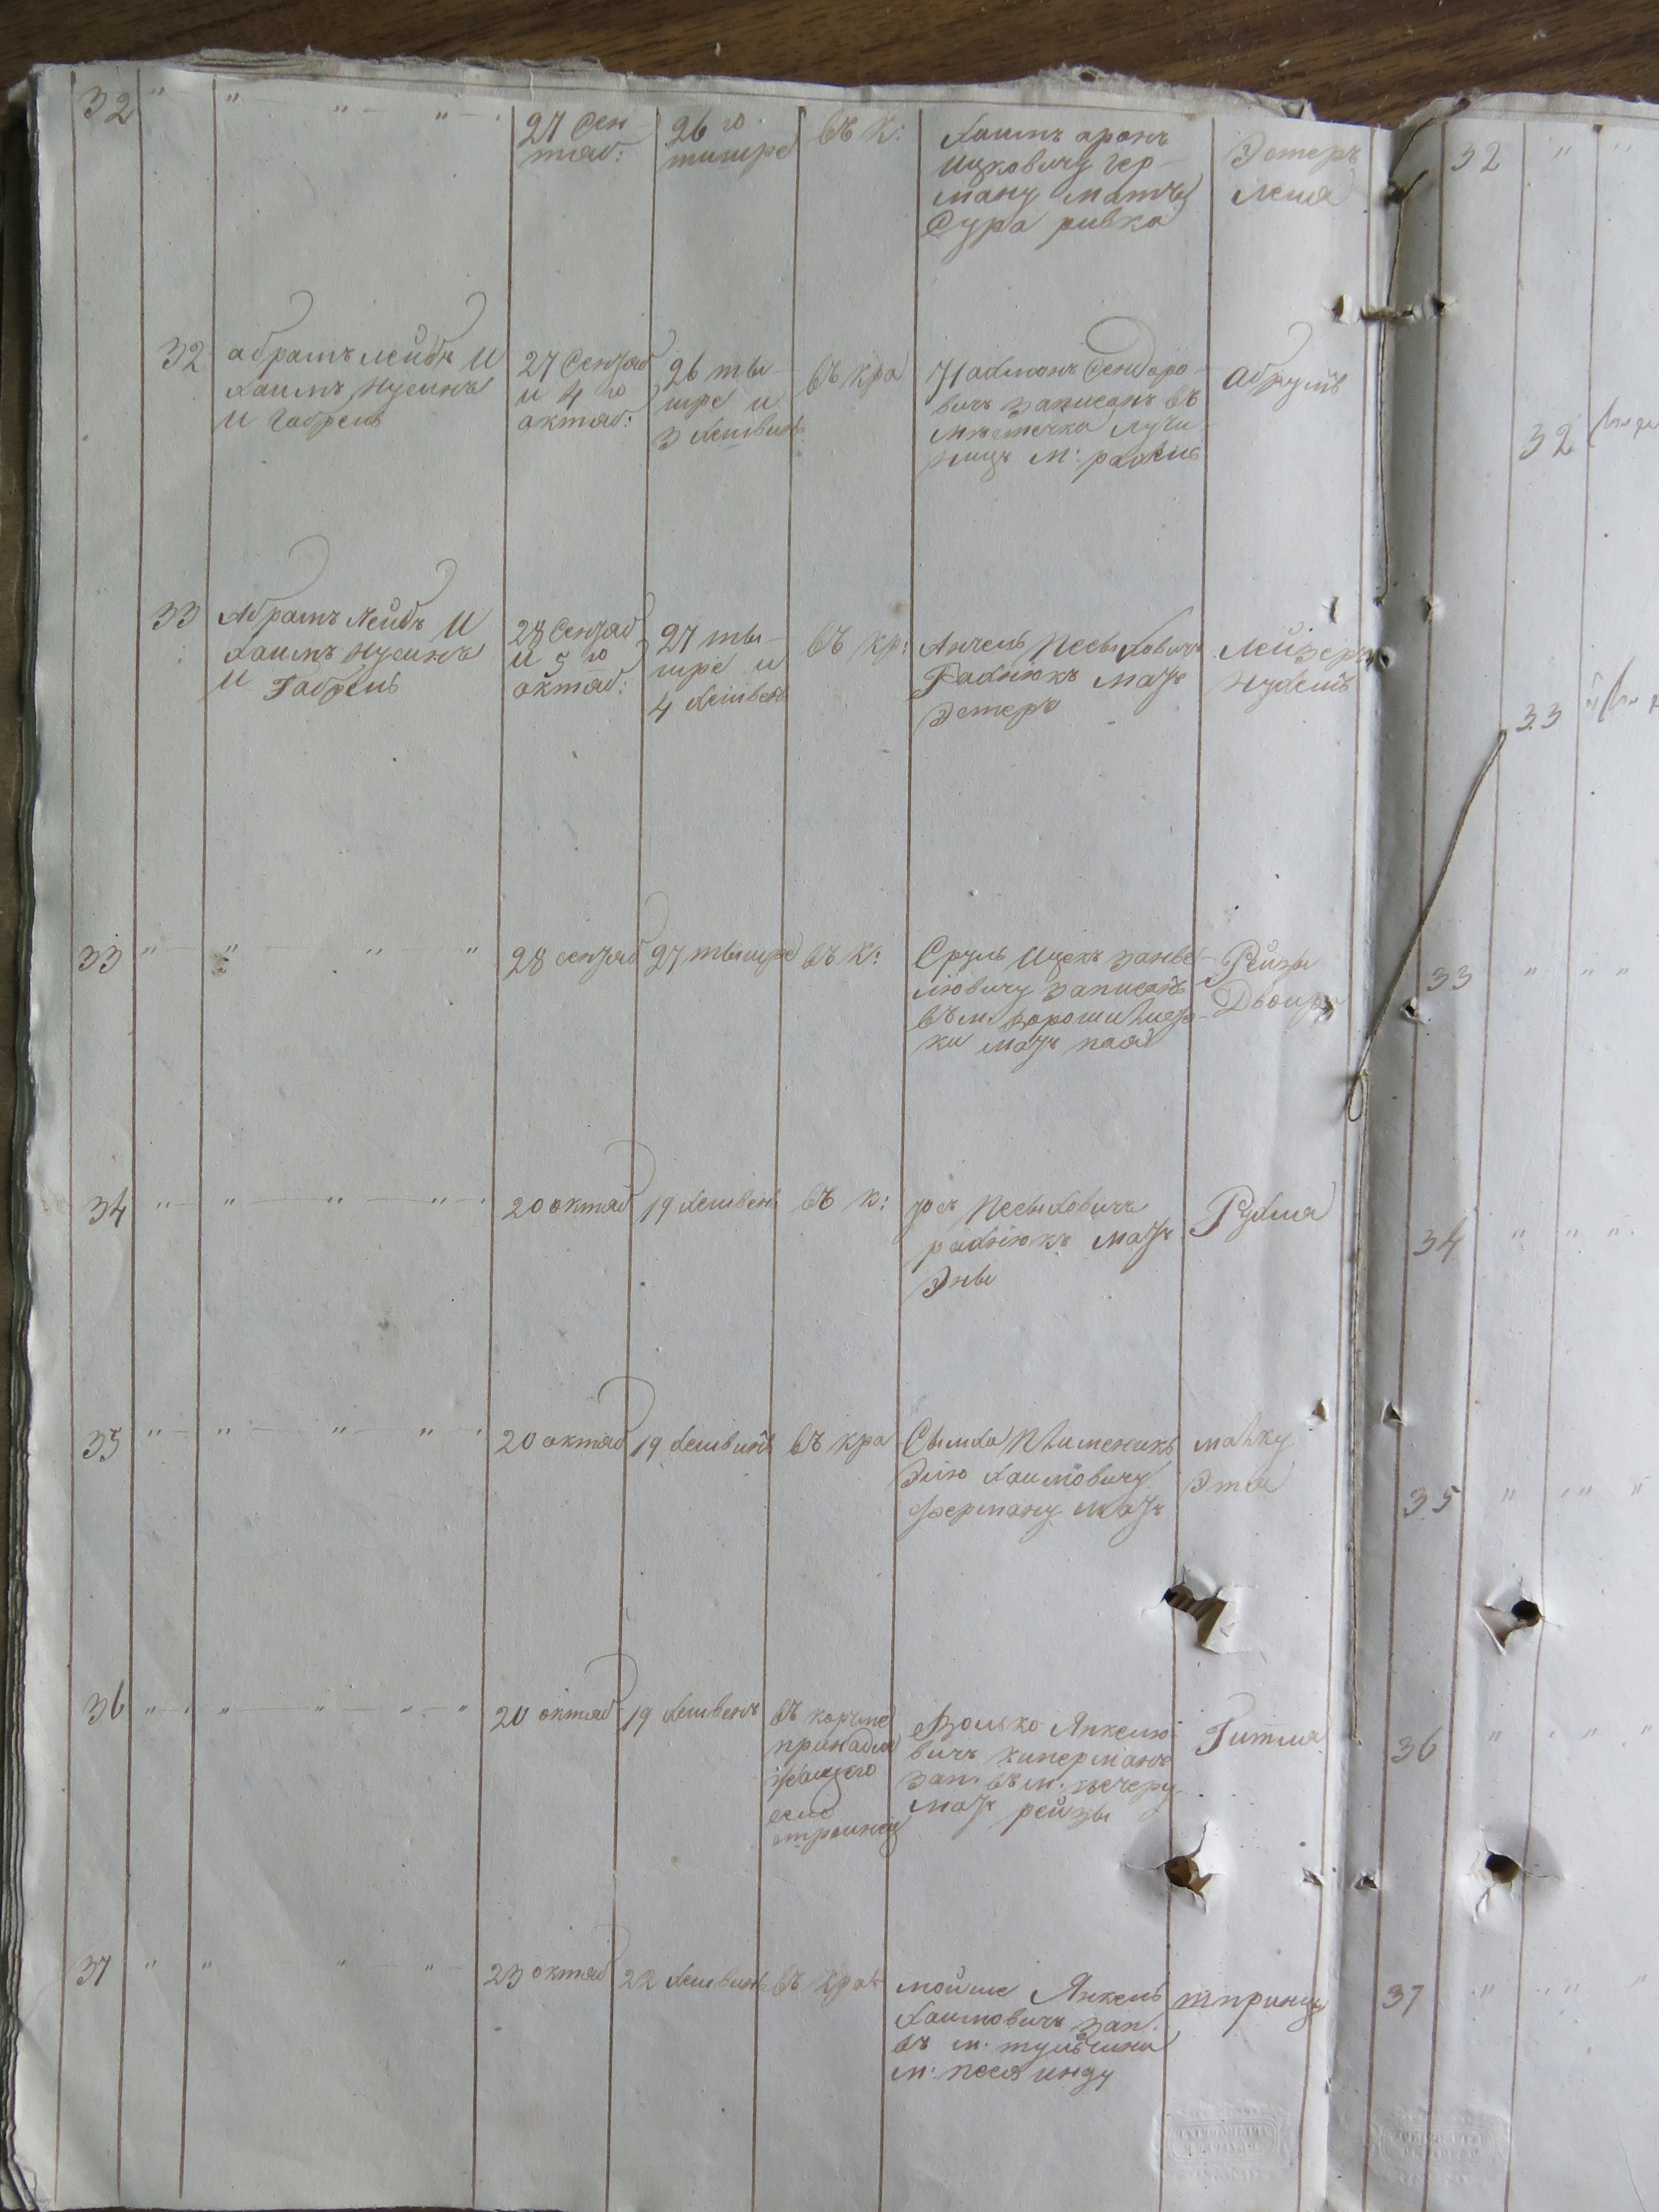 32 " " " "
27 Сен-
тяб:
26 го
тишре
въ К:
Хаимъ аронъ
Ицковичу Гер-
ману мать
Сура ривка
Эстеръ
Леия
32
абрамъ лейбъ И
Хаимъ Нусинъ
И Габрель
27 Сентяб
и 4 го
октяб:
26 ты-
шре и
3 Хешвинъ
въ кра
Нахманъ Сендоро-
вичъ Записанъ въ
мѣстечка лучи-
нецъ м: рахель
Абрумъ
33
Абрамъ Лейбъ И
Хаимъ Нусинъ
И Габрель
28 Сентяб
И 5 го
октяб:
27 ты-
шре и
4 Хешвенъ
въ кр:
Анчель Песыховичъ
Рахнюкъ мать
Эстеръ
Лейзеръ
Нухемъ
33 " " " "
28 сентяб
27 тышре
въ К:
Сруль Ицекъ Занве-
люовичу Записанъ
въ м.
ки мать пая
Рейзы
Двойра
34 " " " "
20 октяб
19 Хешвенъ
въ К:
Юсъ Песыховичъ
рахнюкъ мать
Эны
Рухля
35 " " " "
20 октяб
19 Хешвинъ
въ кра
Сымха Племеникъ
Элю Хаимовичу
ферману мать
малку
Этя
36 " " " "
20 октяб
19 Хешвенъ
въ корчме
принадле
жащего
село
Волько Янкелю-
вичъ Киперманъ
Зап. въ м. печеру
мать рейзы
Гитля
37 " " " "
23 октяб
22 Хешвинъ
въ крас
мойше Янкель
Хаимовичъ Зап.
въ м. тульчина
м: песя инду
тпринцу
32 " "
32
33
33 " " "
34 " " "
35 " " "
36 " " " "
37 " " "